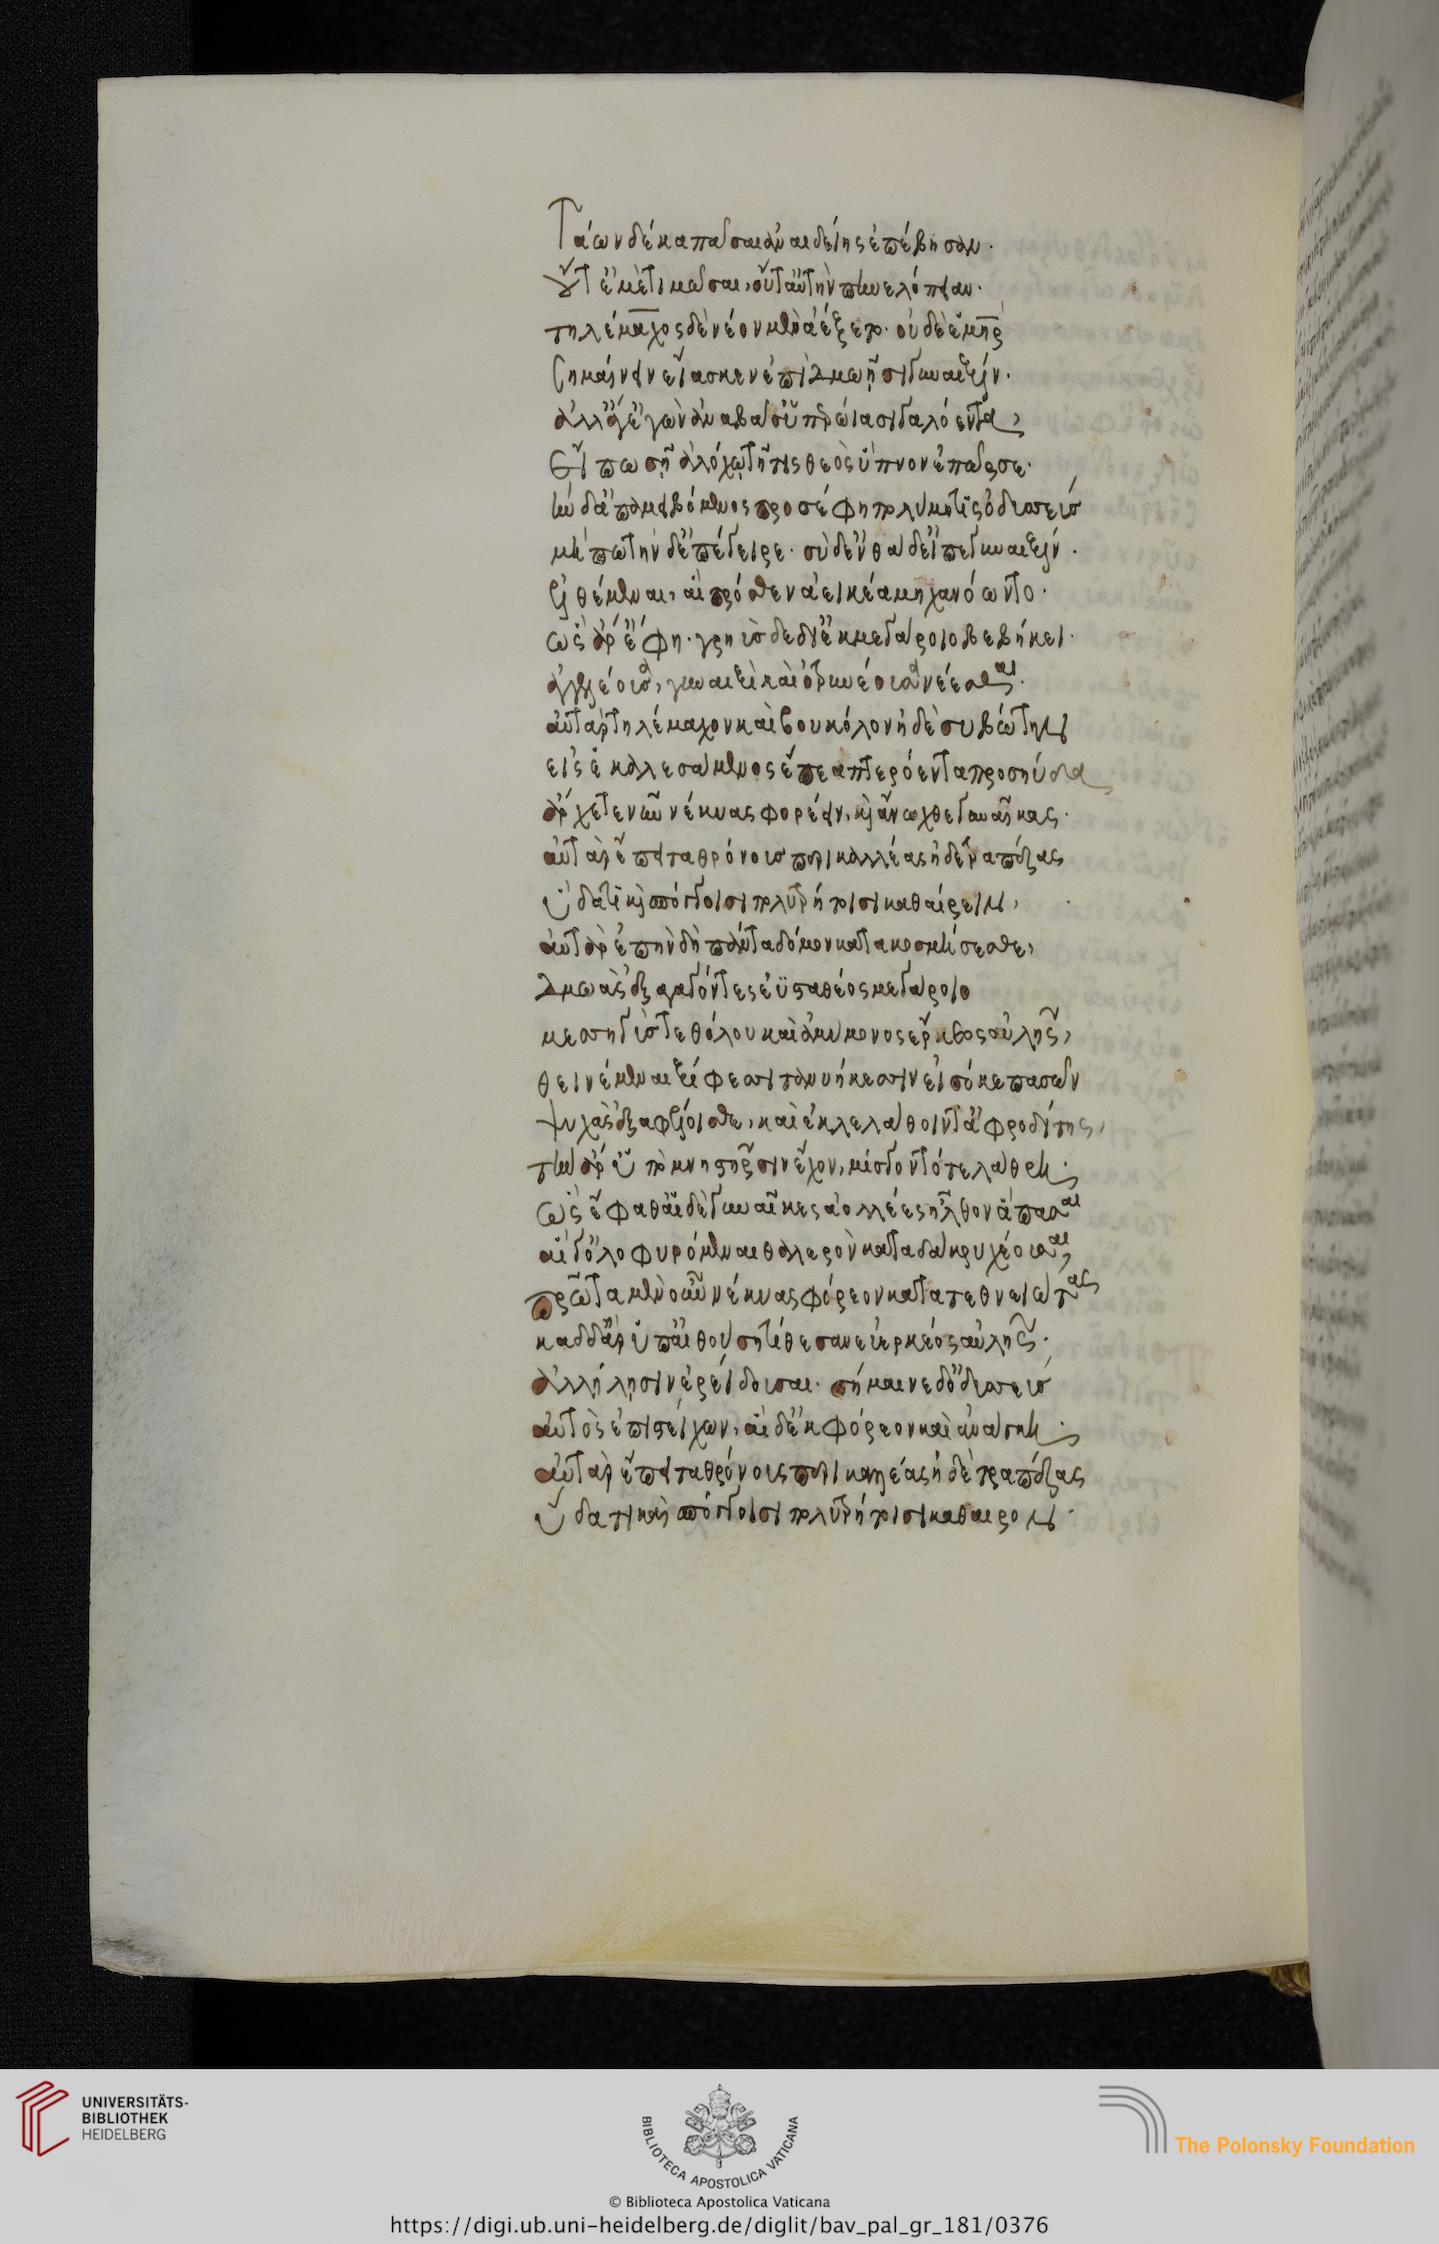 Τάων δέκα πᾶσαι ἀναιδείης ἐπέβησαν·
οὔτ' ἐμὲ τιμῶσαι, οὔτ' αὐτὴν πηνελόπειαν·
τηλέμαχος δὲ νέον μὲν ἀέξετο· οὐδέ ἑ μήτηρ
σημαίνειν εἴασκεν ἐπὶ δμωῇσι γυναιξίν·
ἀλλ' ἄγ' ἐγὼν ἀναβᾶσ' ὑπερώϊα σιγαλόεντα,
εἴπω σῇ ἀλόχῳ τῇ τις θεὸς ὕπνον ἐπῶρσε·
τὴν δ' ἀπαμειβόμενος προσέφη πολύμητις ὀδυσσεύς
μή πω τήν δ' ἐπέγειρε· σὺ δ' ἐνθάδε εἰπὲ γυναιξίν·
ἐλθέμεναι, αἳ πρόσθεν ἀεικέα μηχανόωντο·
ὣς ἄρ' ἔφη· γρηῢς δὲ διὲκ μεγάροιο βεβήκει·
ἀγγελέουσα, γυναιξὶ καὶ ὀτρυνέουσα νέεσθαι·
αὐτὰρ τηλέμαχον καὶ βουκόλον ἠδὲ συβώτην
εἰς ἓ καλεσάμενος ἔπεα πτερόεντα προσηύδα
ἄρχετε νῦν νέκυας φορέειν, καὶ ἄνωχθε γυναῖκας·
αὐτὰρ ἔπειτα θρόνους περικαλλέας ἠδὲ τραπέζας
ὕδατι καὶ σπόγγοισι πολυτρήτοισι καθαίρειν,
αὐτὰρ ἐπὴν δὴ πάντα δόμον κατακοσμήσεσθε,
δμωὰς ἐξαγαγόντες ἐϋσταθέος μεγάροιο
μεσσηγύς τε θόλου καὶ ἀμύμονος ἕρκεος αὐλῆς,
θεινέμεναι ξίφεσι τανυήκεσιν εἰσόκε πασῶν
ψυχὰς ἐξαφέλοισθε, καὶ ἐκλελάθοιντ' ἀφροδίτης,
τὴν ἄρ' ὑπὸ μνηστῆρσιν ἔχον, μίσγοντό τε λάθρη·
ὣς ἔφαθ' αἱ δὲ γυναῖκες ἀολλέες ἦλθον ἅπασαι
αἴν' ὀλοφυρόμεναι θαλερὸν κατὰ δάκρυ χέουσαι,
πρῶτα μὲν οὖν νέκυας φόρεον κατατεθνειῶτας
καδδ' ἄρ' ὑπ' αἰθούσῃ τίθεσαν εὐερκέος αὐλῆς·
ἀλλήλησιν ἐρείδουσαι· σήμαινε δ' ὀδυσσεύς
αὐτὸς ἐπιστείχων, αἱ δ' ἐκφόρεον καὶ ἀνάγκη·
αὐτὰρ ἔπειτα θρόνους περικαλλέας ἠδὲ τραπέζας
ὕδατι καὶ σπόγγοισι πολυτρήτοισι καθαιρον·
UNIVERSITÄTS-
BIBLIOTHEK
HEIDELBERG
BIBLIOTECA APOSTOLICA VATICANA
The Polonsky Foundation
© Biblioteca Apostolica Vaticana
https://digi.ub.uni-heidelberg.de/diglit/bav_pal_gr_181/0376